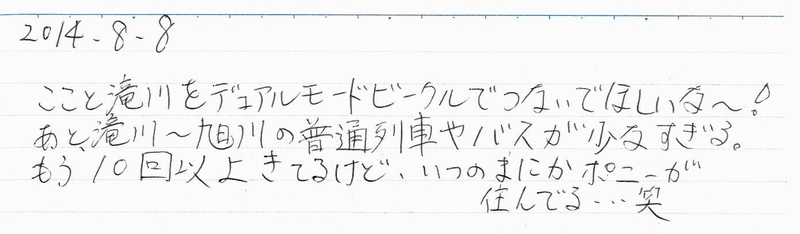 2014-8-8
ここと滝川をデュアルモードビークルでつないでほしいな〜!
あと、滝川〜旭川の普通列車やバスが少なすぎる。
もう10回以上きてるけど、いつのまにかポニーが
住んでる…笑